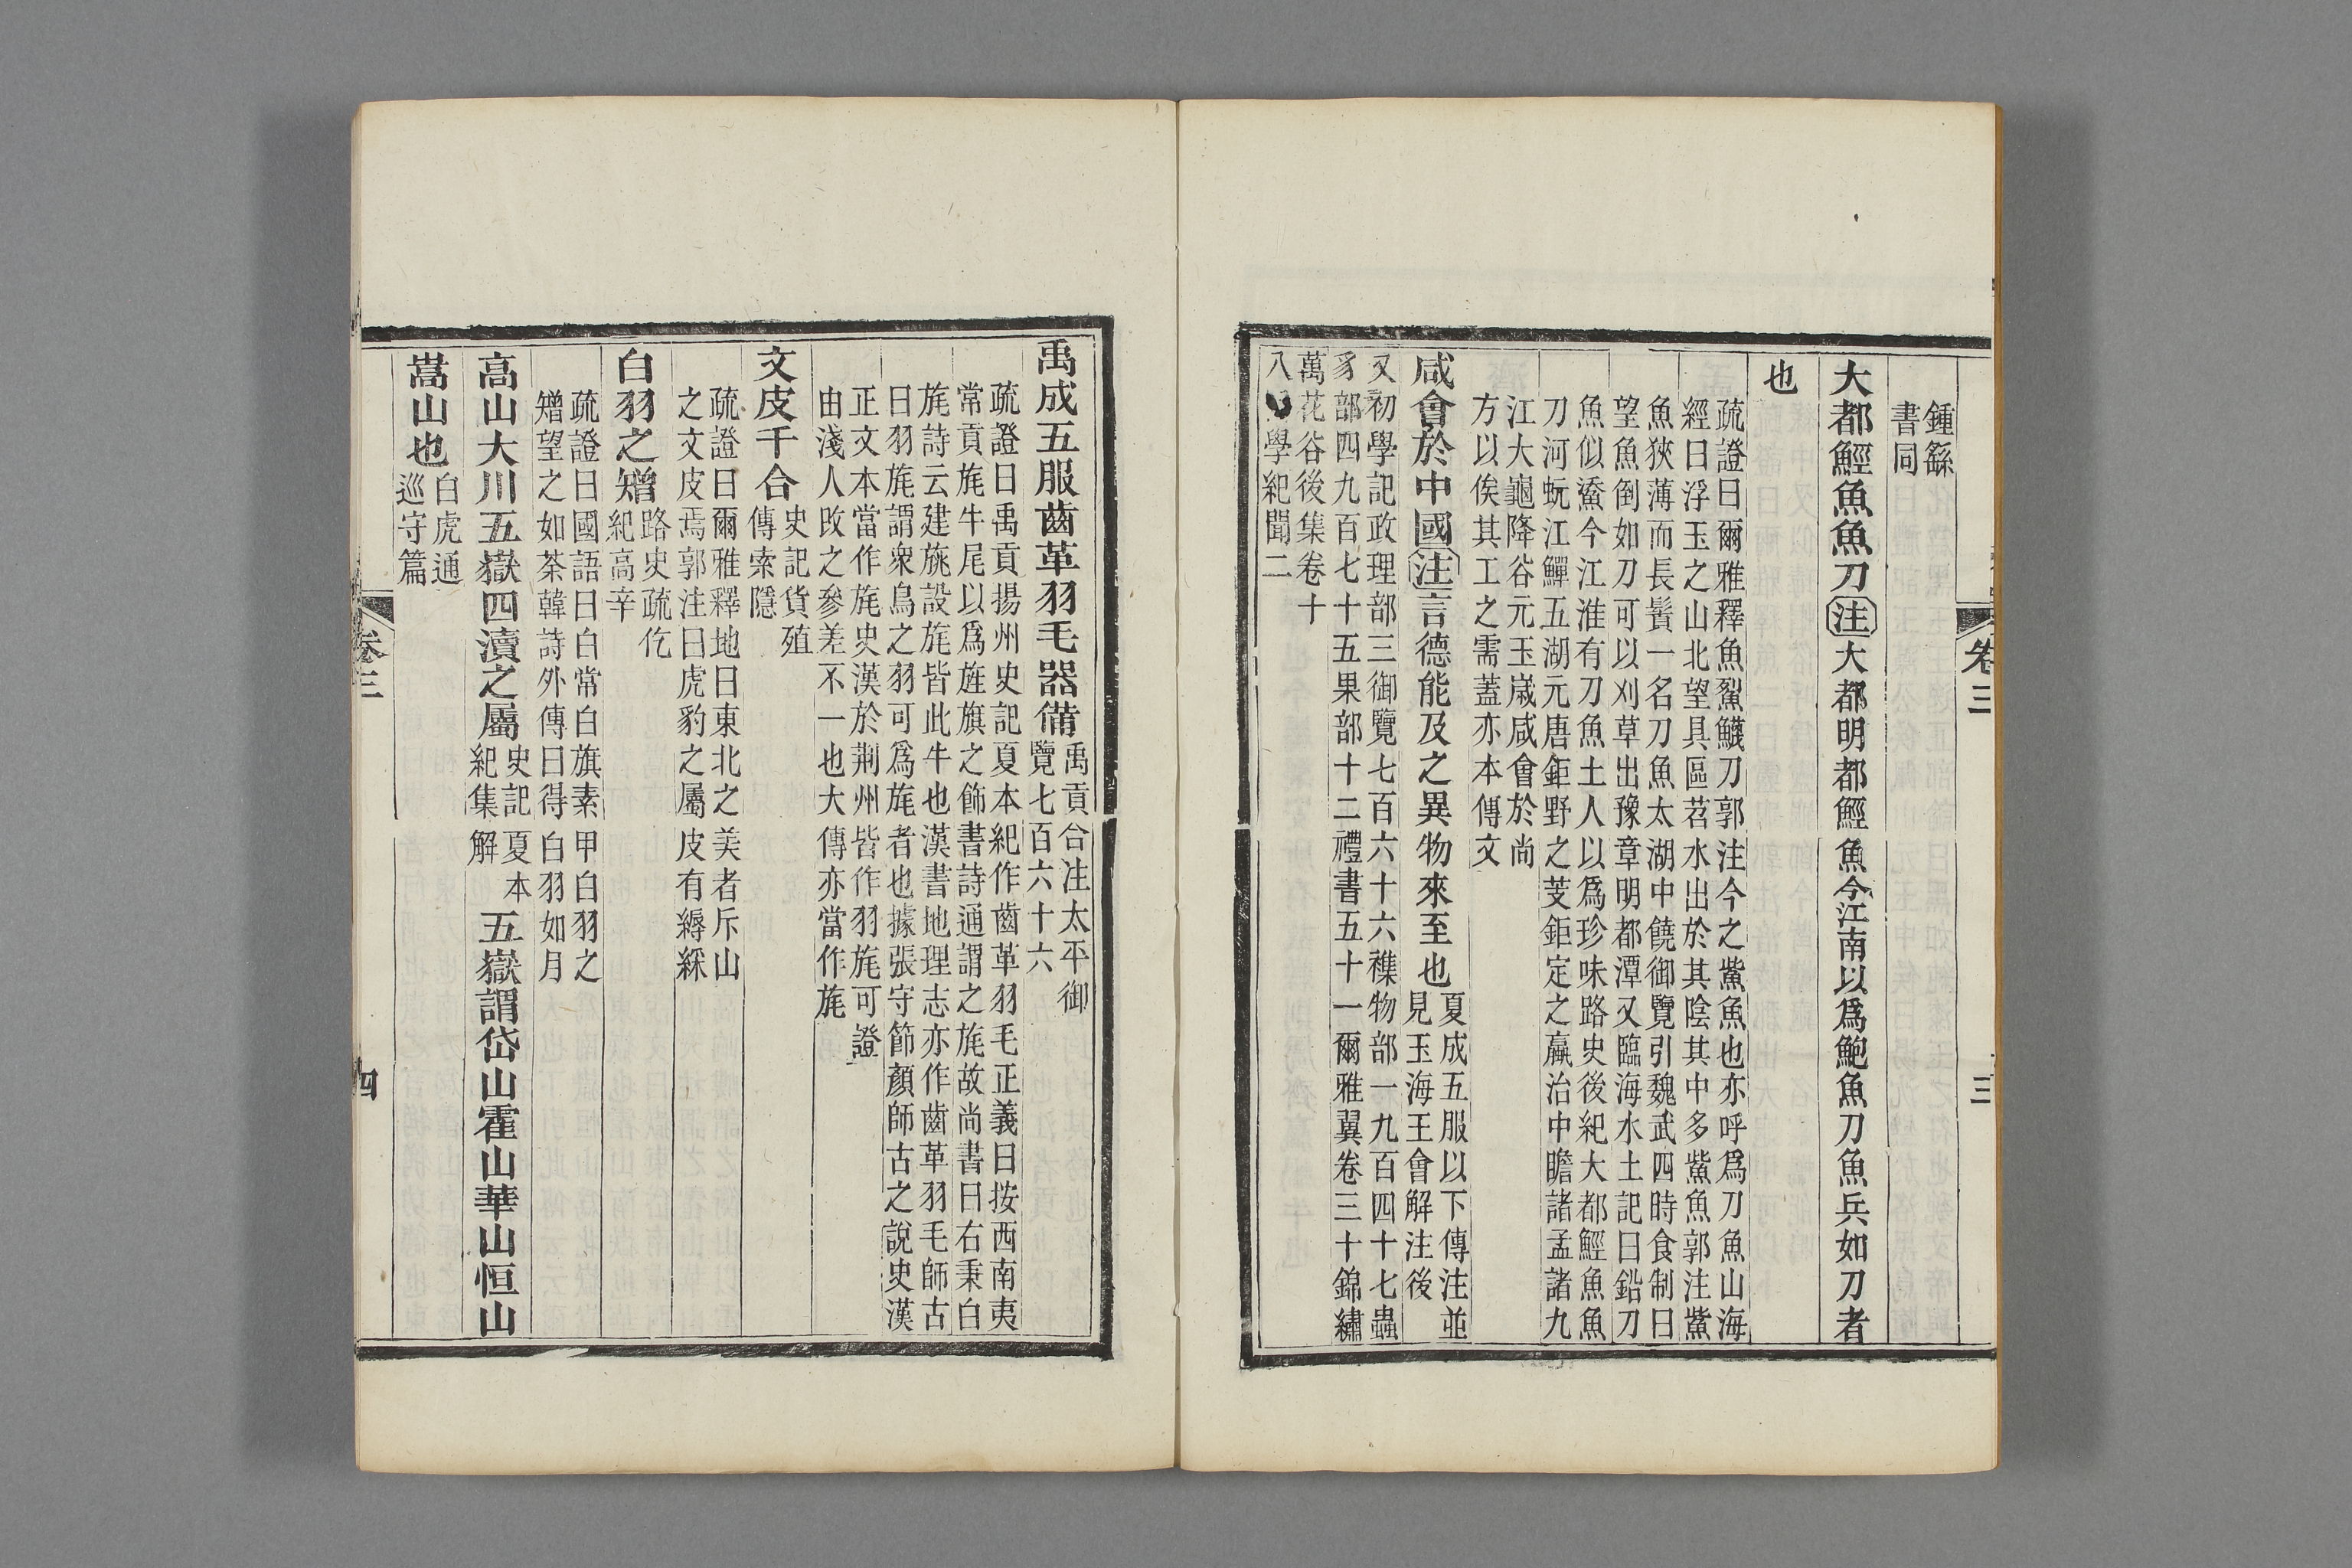 卷三
三
鍾繇
書同
大都鯹魚魚刀注大都明都鯹魚今江南以爲鮑魚刀魚兵如刀者
也
疏證曰爾雅釋魚鮤鱴刀郭注今之鮆魚也亦呼爲刀魚山海
經曰浮玉之山北望具區苕水出於其陰其中多鮆魚郭注鮆
魚狹薄而長鬢一名刀魚太湖中饒御覽引魏武四時食制曰
望魚側如刀可以刈草出豫章明都潭又臨海水土記曰鉛刀
魚似鮝今江淮有刀魚土人以爲珍味路史後紀大都鯹魚魚
刀河䖢江鱓五湖元唐鉅野之芰鉅定之蠃治中瞻諸孟諸九
江大龜降谷元玉嵗咸會於尚
方以俟其工之需蓋亦本傳文
咸會於中國注言德能及之異物來至也
夏成五服以下傳注並
見玉海王會解注後
又初學記政理部三御覽七百六十六襍物部一九百四十七蟲
豸部四九百七十五果部十二禮書五十一爾雅翼卷三十錦繡
萬花谷後集卷十
八學紀聞二
禹成五服齒革羽毛器備
禹貢合注太平御
覽七百六十六
疏證曰禹貢揚州史記夏本紀作齒革羽毛正義曰按西南夷
常貢旄牛尾以爲旌旗之飾書詩通謂之旄故尚書曰右秉白
旄詩云建旐設旄皆此牛也漢書地理志亦作齒革羽毛師古
曰羽旄謂衆鳥之羽可爲旄者也據張守節顏師古之說史漢
正文本當作旄史漢於荆州皆作羽旄可證
由淺人改之參差不一也大傳亦當作旄
文皮千合
史記貨殖
傳索隱
疏證曰爾雅釋地曰東北之美者斥山
之文皮焉郭注曰虎豹之屬皮有縟綵
白羽之矰
路史疏仡
紀高辛
疏證曰國語曰白常白旗素甲白羽之
矰望之如荼韓詩外傳曰得白羽如月
高山大川五嶽四瀆之屬
史記夏本
紀集解
五嶽謂岱山霍山華山恒山
嵩山也
白虎通
巡守篇
卷三
四